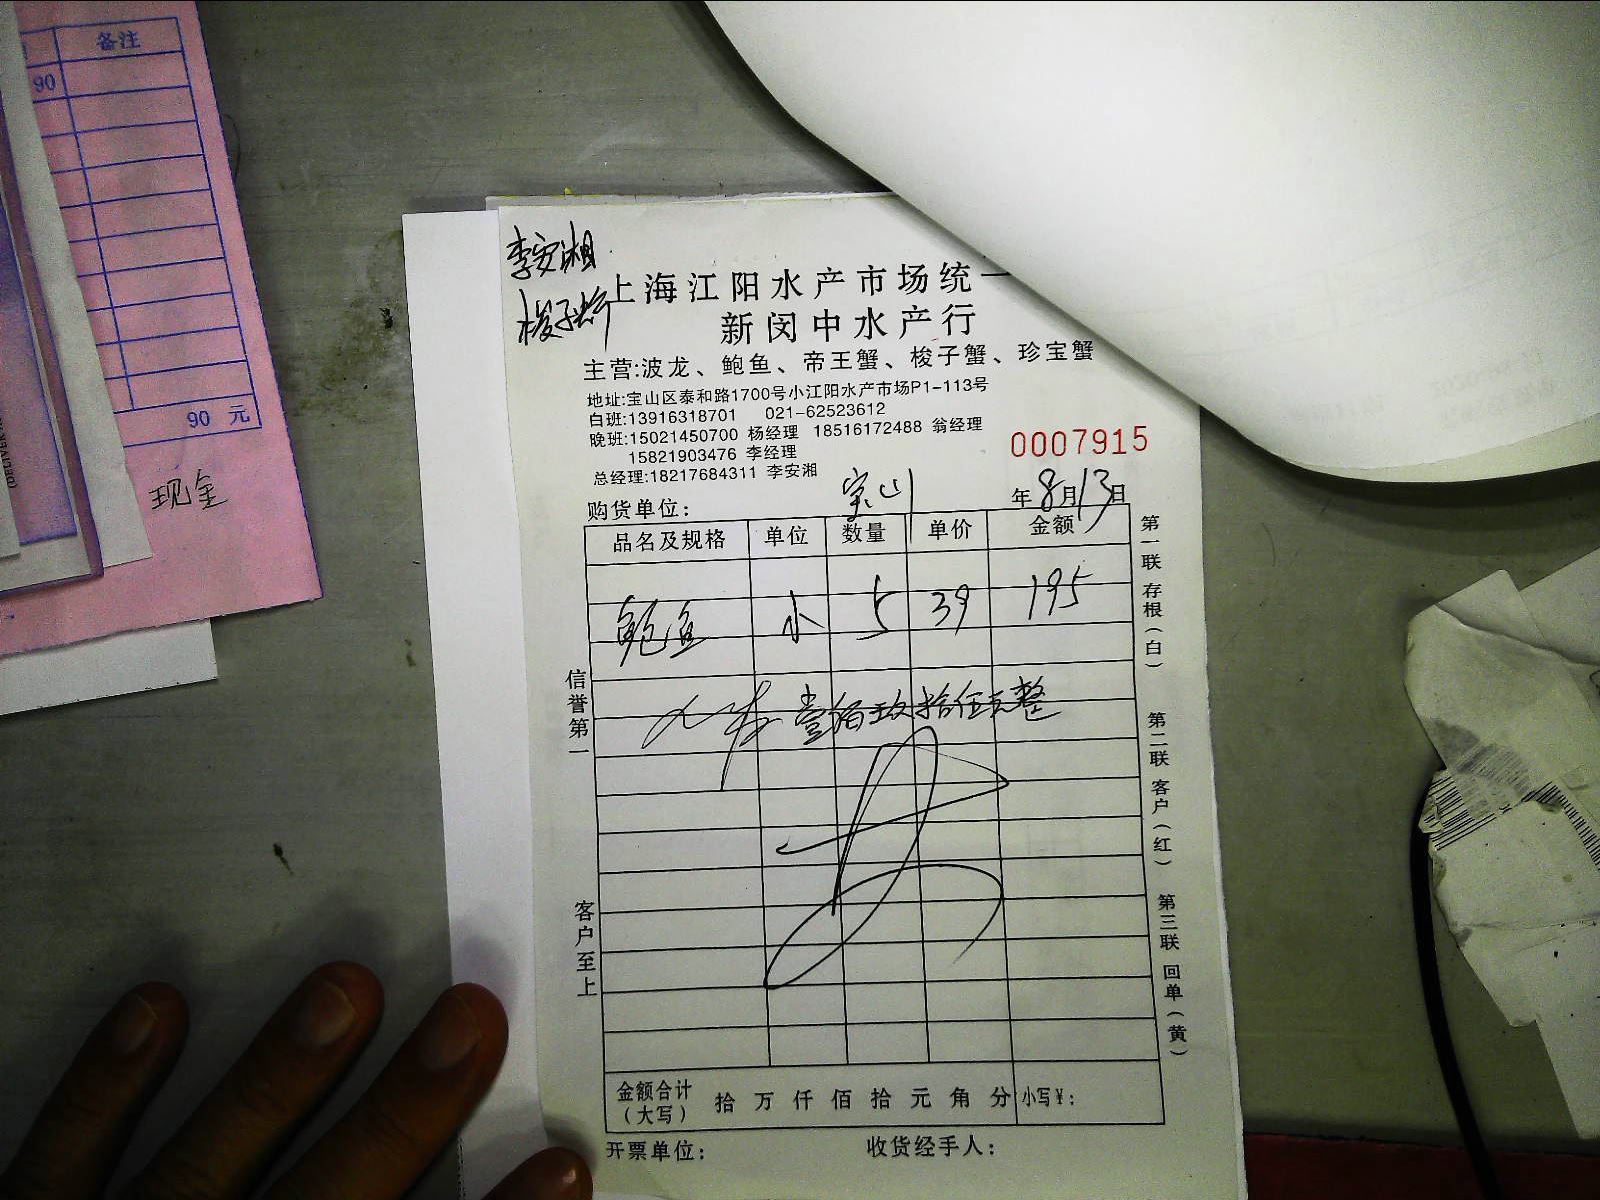 备注
90
90 元
现金
李安湘
梭子蟹
上海江阳水产市场统一
新闵中水产行
主营:波龙、鲍鱼、帝王蟹、梭子蟹、珍宝蟹
地址:宝山区泰和路1700号小江阳水产市场P1-113号
白班:13916318701 021-62523612
晚班:15021450700 杨经理 18516172488 翁经理
15821903476 李经理
总经理:18217684311 李安湘
0007915
购货单位: 宝山 年8月13日
品名及规格 单位 数量 单价 金额
鲍鱼 小 5 39 195
壹佰玖拾伍元整
金额合计(大写) 拾 万 仟 佰 拾 元 角 分 小写¥:
开票单位: 收货经手人:
信誉第一
客户至上
第一联 存根(白)
第二联 客户(红)
第三联 回单(黄)